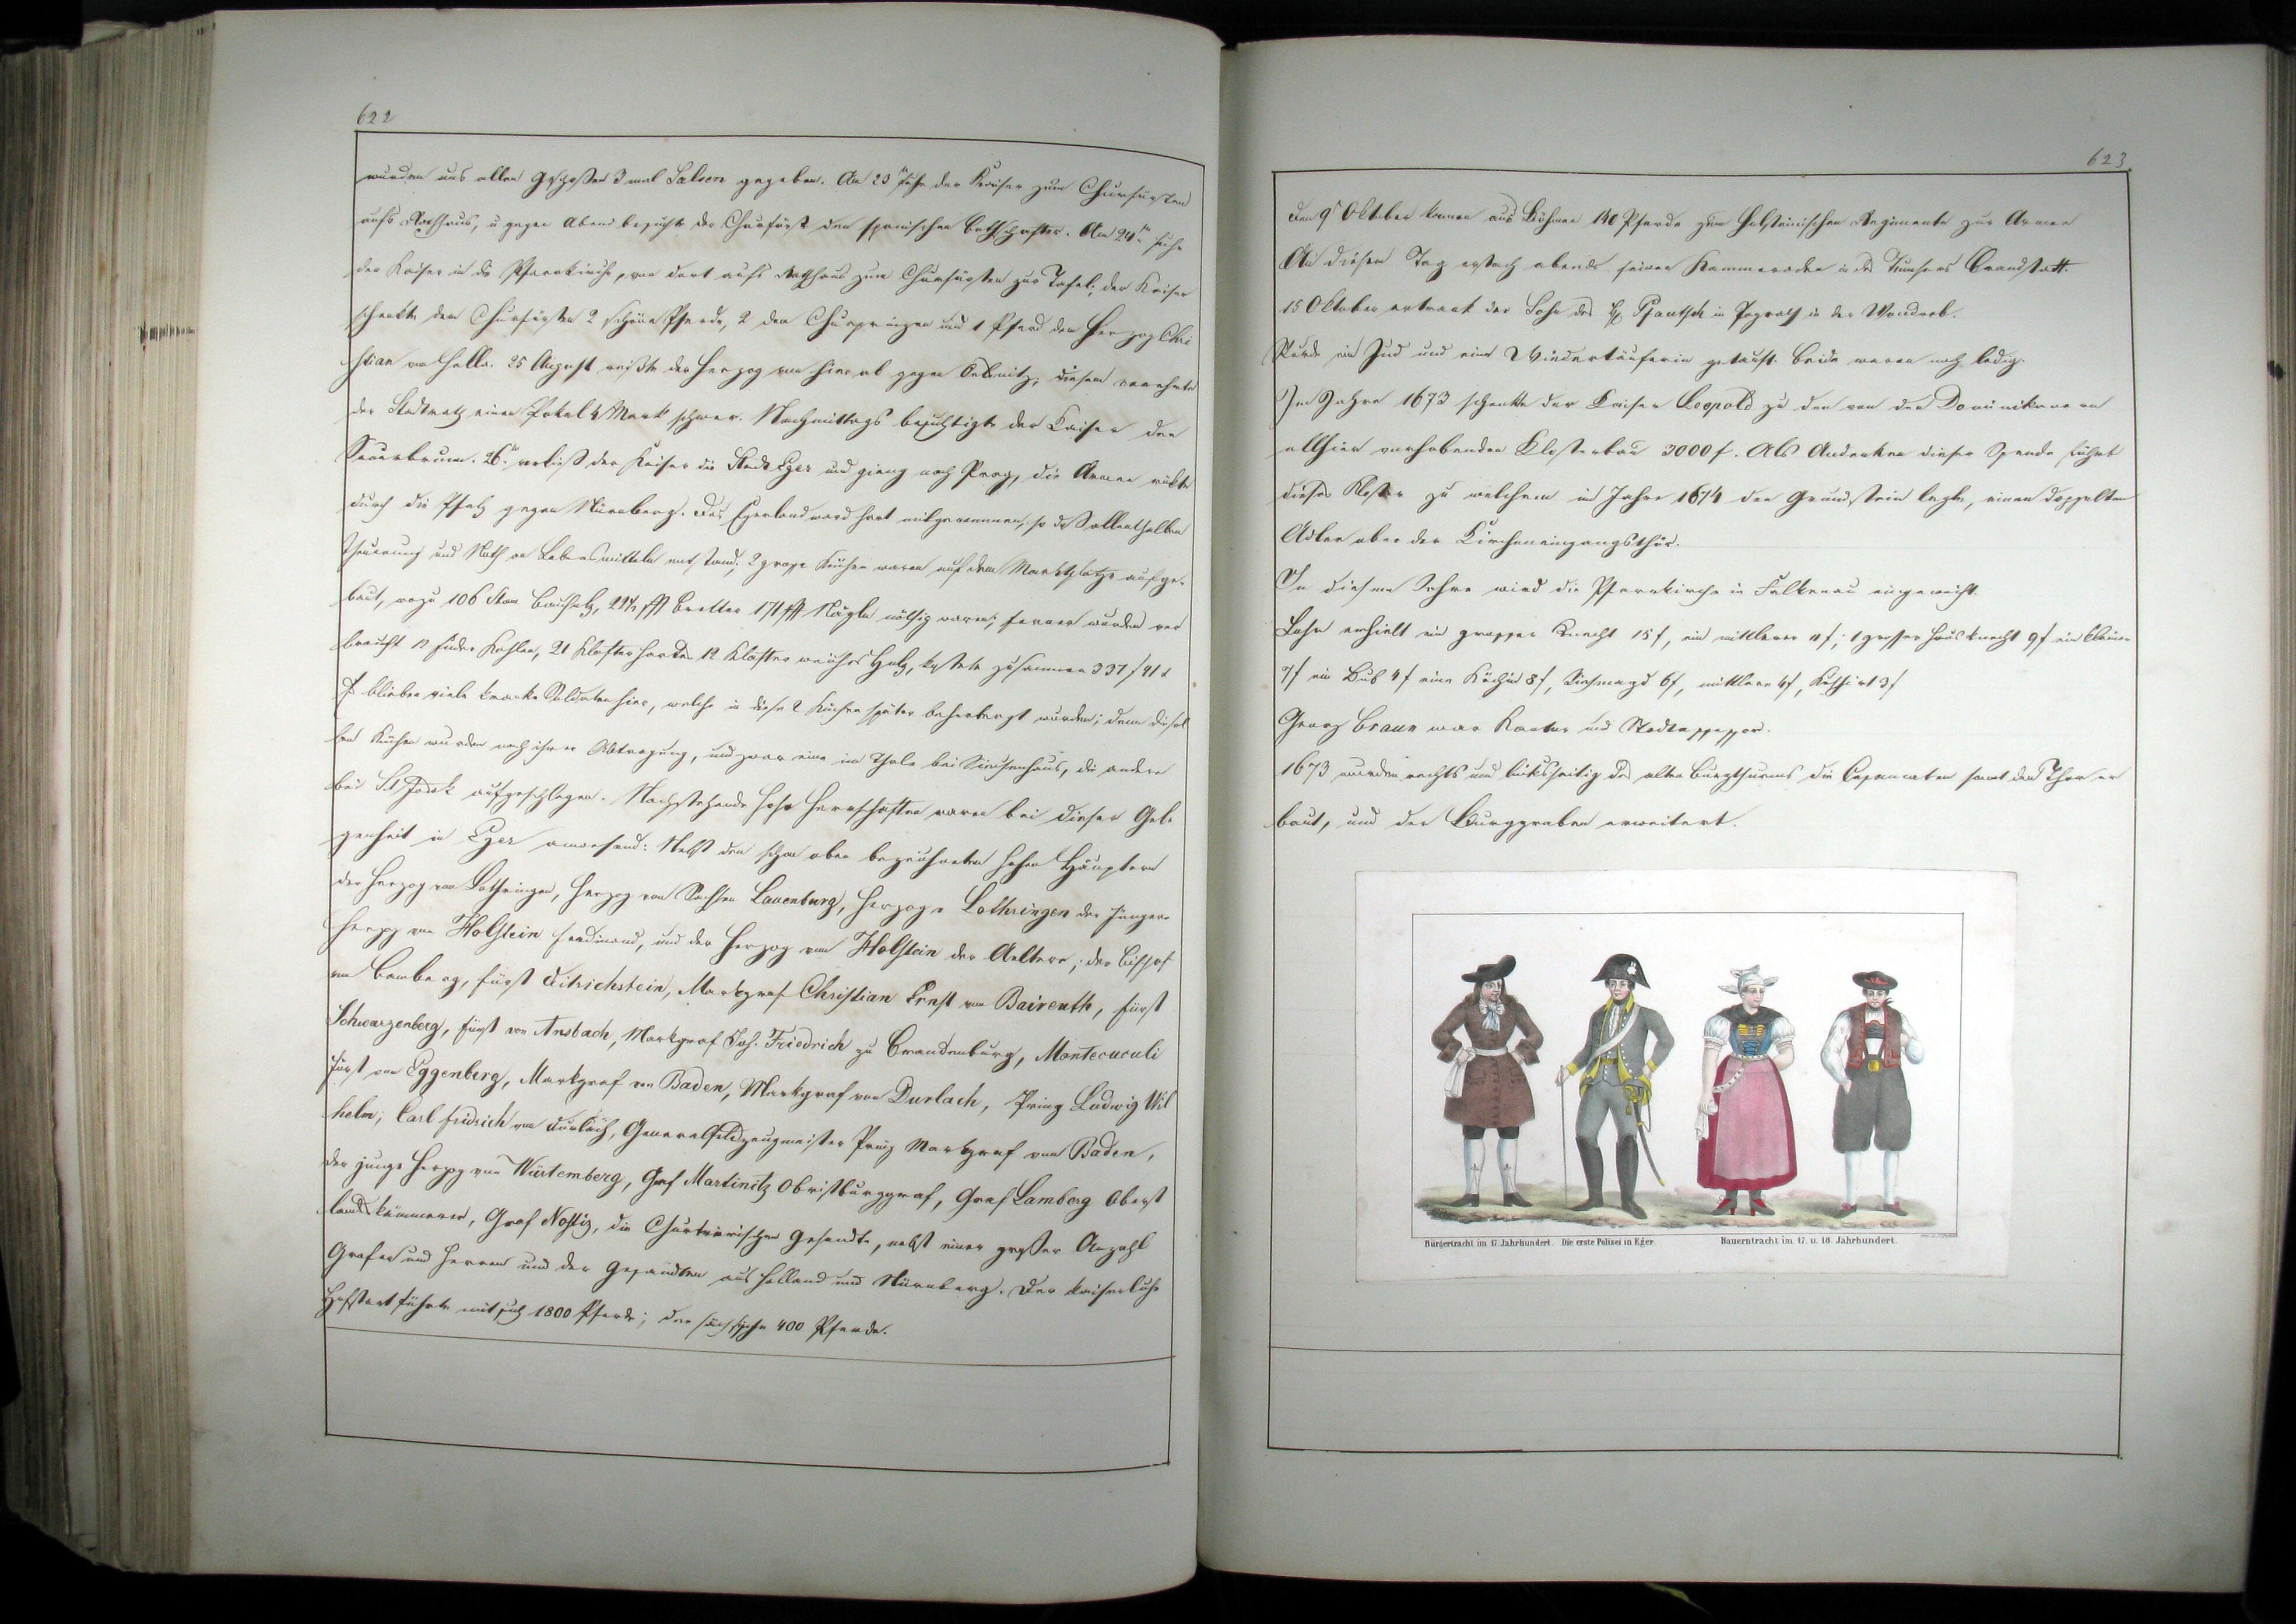 622
wurden aus allen Geschoßen 3 mal Salven gegeben. Am 23 fuhr der Kaiser zum Churfürsten
aufs Rathhaus, u gegen Abend besuchte der Churfürst den spanischen Bothschafter. Am 24 fuhr
der Kaiser in die Pfarrkirche, von dort aufs Rathhaus zum Churfürsten zur Tafel; der Kaiser
schenkte dem Churfürsten 2 schöne Pferde, 2 dem Churprinzen und 1 Pferd dem Herzog Chri
stian von Halle. 25 August reißte der Herzog von hier ab gegen Oelsnitz, diesem verehrte
der Stadtrath einen Pokal 4 Mark schwer. Nachmittags besichtigte der Kaiser den
Sauerbrunn. 26 verließ der Kaiser die Stadt Eger und gieng nach Prag, die Armee rükte
durch die Pfalz gegen Nürnberg. Das Egerland ward hart mitgenommen, so daß allenthalben
Theuerung und Noth an Lebensmitteln entstand; 2 große Küchen waren auf dem Marktplatze aufge-
baut, wozu 106 Stam Bauholz, Bretter Nägln nöthig waren; ferner wurden ver
braucht 12 Fuder Kohlen, 21 Klafter hartes 12 Klafter weiches Holz, kostete zusammen 337 f 41 x
Es blieben viele kranke Soldaten hier, welche in diese 2 Küchen später beherbergt wurden; denn diesel
ben Küchen wurden nach ihrer Abtragung, und zwar eine im Thale bei Siechenhaus, die andere
bei St Jodok aufgeschlagen. Nachstehende hohe Herrschaften waren bei dieser Gele
genheit in Eger anwesend: Nebst den schon oben bezeichneten hohen Häuptern
der Herzog von Lothringen, Herzog von Sachsen Lauenburg, Herzog v Lothringen der Jüngere
Herzog von Holstein Ferdinand, und der Herzog von Holstein der Aeltere; der Bischof
von Bamberg, Fürst Ditrichstein, Markgraf Christian Ernst von Baireuth, Fürst
Schwarzenberg, Fürst von Ansbach, Markgraf Joh. Friedrich zu Brandenburg, Montecuculi
Fürst von Eggenberg, Markgraf von Baden, Markgraf von Durlach, Prinz Ludwig Wil
helm, Carl Fridrich von Durlach, Generalfeldzeugmeister Prinz Markgraf von Baden,
der junge Herzog von Würtemberg, Graf Martinitz Obristburggraf, Graf Lamberg Oberst
landkämmerer, Graf Nostiz, die Churtrierischen Gesandte, nebst einer großen Anzahl
Grafen und Herren und der Gesandten aus Holland und Nürnberg. Der kaiserliche
Hofstaat führte mit sich 1800 Pferde; der sächsische 400 Pferde.
623
Den 9 Oktober kamen aus Böhmen 140 Pferde zum Holsteinischen Regimente zur Armee
An diesen Tag erstach abends seinen Kammeraden in des Brandstatt.
15 Oktober ertrank der Sohn des Pfantsch in Pograth in der Wondreb.
Wurde ein Jud und eine Wiedertäuferin getauft. Beide waren noch ledig.
Im Jahre 1673 schenkte der Kaiser Leopold zu den von den Dominikanern
allhier vorhabenden Klosterbau 3000 f. Als Andenken dieser Spende führt
dieses Kloster zu welchem im Jahre 1674 der Grundstein legte, einen doppelten
Adler ober der Kircheneingangsthür.
In diesem Jahre wird die Pfarrkirche in Falkenau eingeweiht.
Lohn erhielt ein grosser Knecht 15 f, ein mittlerer 11 f; 1 grosser Hausknecht 9 f ein kleiner
7 f ein Bub 4 f eine Köchin 8 f, Viehmagd 6 f, mittlere 4 f, Kuhhirt 3 f
Georg Braun war Kantor und
1673 wurden rechts und linksseitig des alten Burgthurms die Casematen samt dem Thor er
baut, und der Burggraben erweitert.
Bürgertracht im 17. Jahrhundert. Die erste Polizei in Eger. Bauerntracht im 17. u. 18. Jahrhundert.